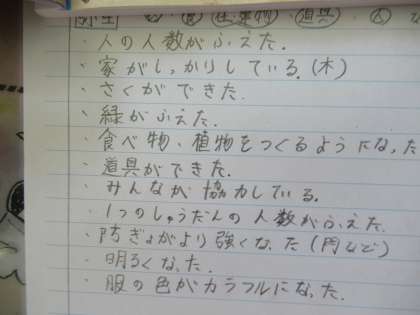 弥生 食 住、建物 道具 人
・人の人数がふえた.
・家がしっかりしている.(木)
・さくができた.
・緑がふえた.
・食べ物、植物をつくるようになった
・道具ができた.
・みんなが協力している.
・1つのしゅうだんの人数がふえた.
・防ぎょがより強くなった(門など)
・明るくなった.
・服の色がカラフルになった.